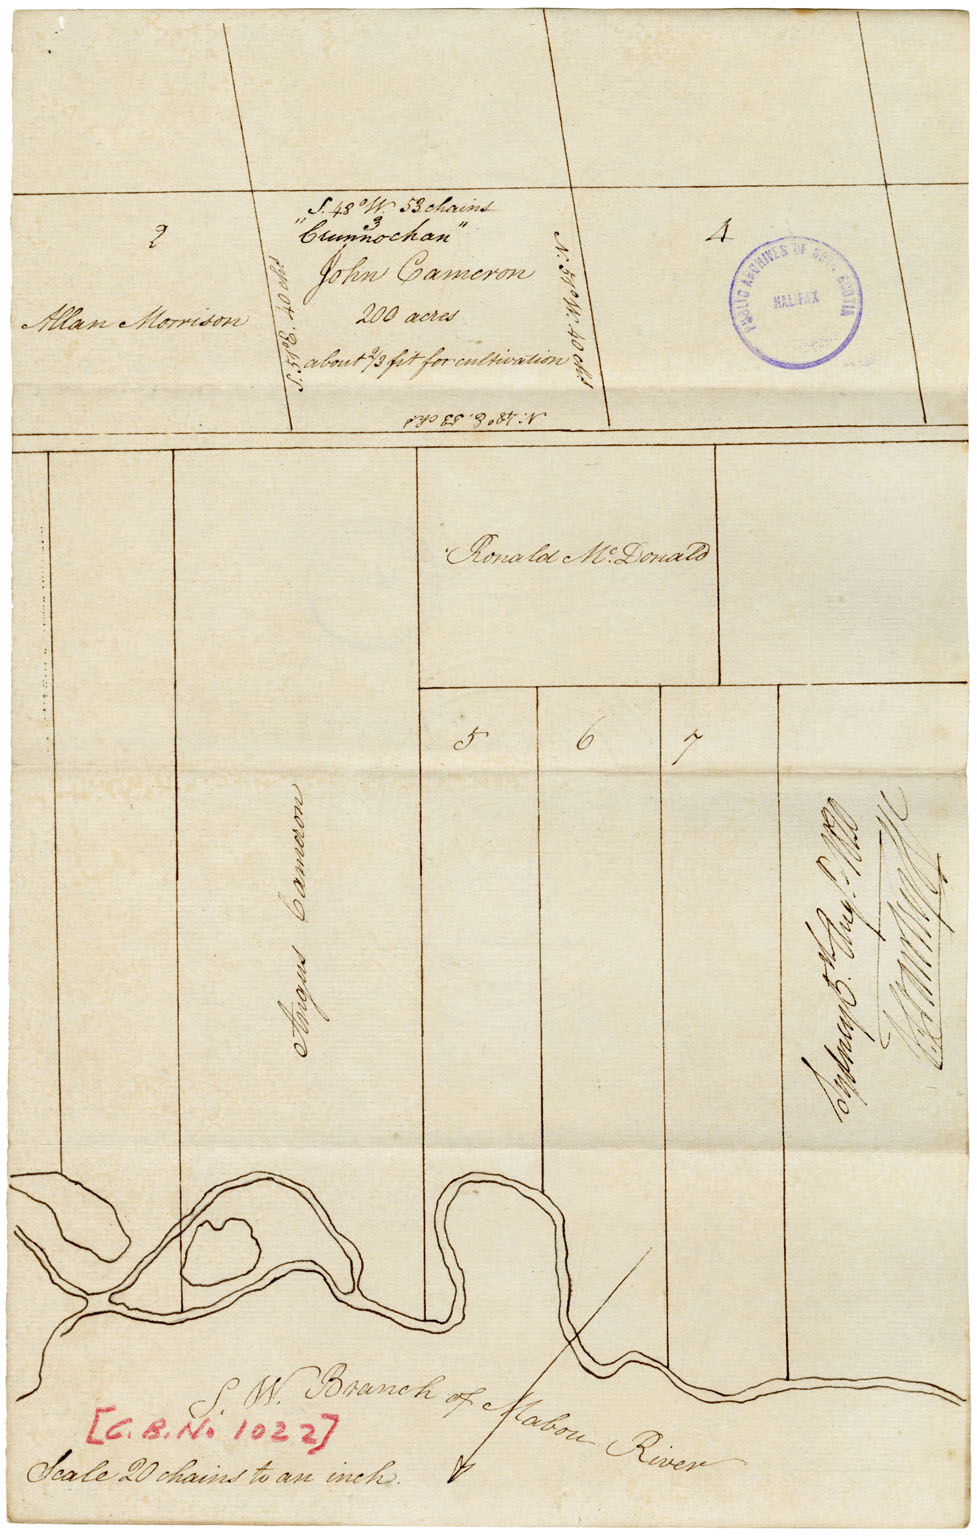 S. 48° W. 53 chains
3
"Crunnochan"
John Cameron
200 acres
about 2/3 fit for cultivation
N. 48° E. 53 chs
S. 51° E. 40 chs
N. 51° W. 40 chs
2
Allan Morrison
4
PUBLIC ARCHIVES OF NOVA SCOTIA
HALIFAX
Ronald Mc. Donald
5
6
7
Angus Cameron
Sydney 5th Augt. 1820
S. W. Branch of Mabou River
[C. B. No 1022]
Scale 20 chains to an inch.